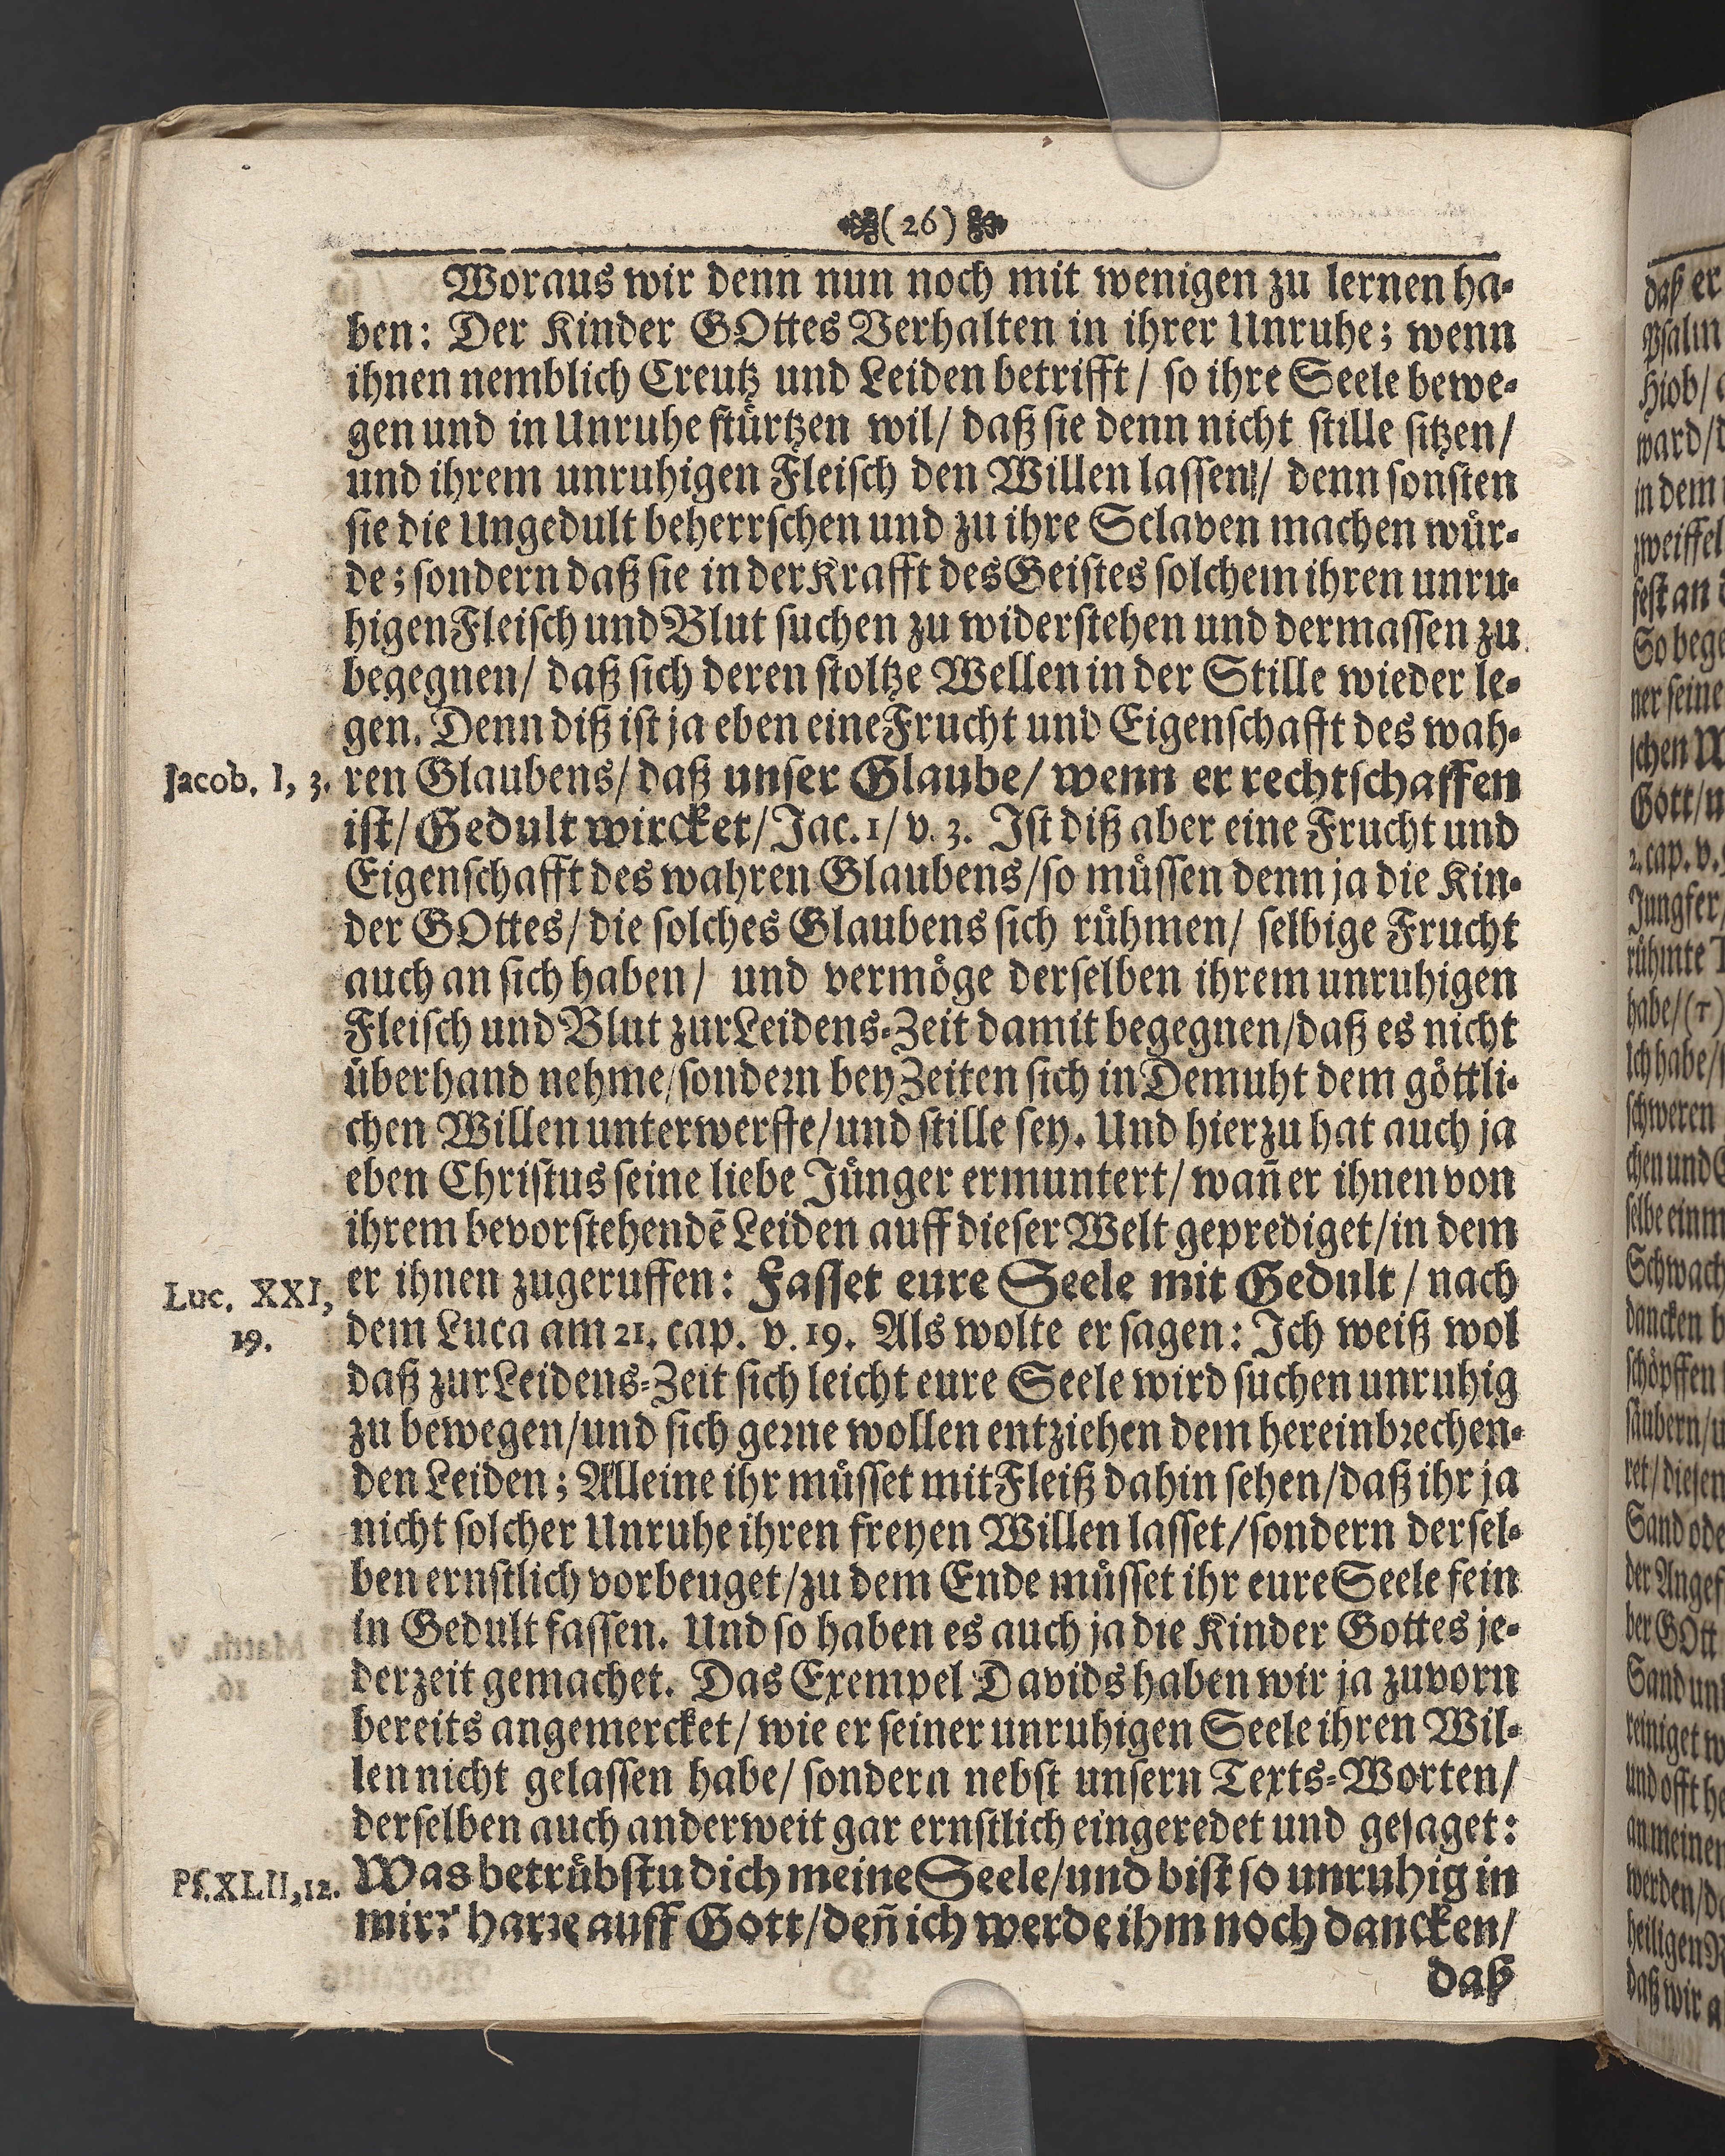 (26)
Woraus wir denn nun noch mit wenigen zu lernen ha-
ben: Der Kinder GOttes Verhalten in ihrer Unruhe; wenn
ihnen nemblich Creutz und Leiden betrifft / so ihre Seele bewe-
gen und in Unruhe stürtzen wil/ daß sie denn nicht stille sitzen/
und ihrem unruhigen Fleisch den Willen lassen/ denn sonsten
sie die Ungedult beherrschen und zu ihre Sclaven machen wür-
de; sondern daß sie in der Krafft des Geistes solchem ihren unru-
higen Fleisch und Blut suchen zu widerstehen und dermassen zu
begegnen/ daß sich deren stoltze Wellen in der Stille wieder le-
gen. Denn diß ist ja eben eine Frucht und Eigenschafft des wah-
Jacob. I, 3.
ren Glaubens/ daß unser Glaube/ wenn er rechtschaffen
ist/ Gedult wircket/ Jac. 1/ v. 3. Ist diß aber eine Frucht und
Eigenschafft des wahren Glaubens/ so müssen denn ja die Kin-
der GOttes/ die solches Glaubens sich rühmen/ selbige Frucht
auch an sich haben/ und vermöge derselben ihrem unruhigen
Fleisch und Blut zur Leidens-Zeit damit begegnen/ daß es nicht
überhand nehme/ sondern bey Zeiten sich in Demuht dem göttli-
chen Willen unterwerffe/ und stille sey. Und hierzu hat auch ja
eben Christus seine liebe Jünger ermuntert/ wañ er ihnen von
ihrem bevorstehendē Leiden auff dieser Welt geprediget/ in dem
Luc. XXI,
19.
er ihnen zugeruffen: Fasset eure Seele mit Gedult / nach
dem Luca am 21. cap. v. 19. Als wolte er sagen: Ich weiß wol
daß zur Leidens-Zeit sich leicht eure Seele wird suchen unruhig
zu bewegen/ und sich gerne wollen entziehen dem hereinbrechen-
den Leiden; Alleine ihr müsset mit Fleiß dahin sehen/ daß ihr ja
nicht solcher Unruhe ihren freyen Willen lasset/ sondern dersel-
ben ernstlich vorbeuget/ zu dem Ende müsset ihr eure Seele fein
in Gedult fassen. Und so haben es auch ja die Kinder Gottes je-
derzeit gemachet. Das Exempel Davids haben wir ja zuvorn
bereits angemercket/ wie er seiner unruhigen Seele ihren Wil-
len nicht gelassen habe/ sondern nebst unsern Texts-Worten/
derselben auch anderweit gar ernstlich eingeredet und gesaget:
Ps. XLII, 12.
Was betrübstu dich meine Seele/ und bist so unruhig in
mir? harre auff Gott/ deñ ich werde ihm noch dancken/
daß
daß er
Psalm
Hiob/
ward/
in dem
zweiffel
fest an
So bege
ner seine
schen
Gott/
2. cap. v.
Jungfer/
rühmte
habe/ (r)
Ich habe/
schweren
chen und
selbe einm
Schwach
dancken
schöpffen
säubern/
ret/ diesen
Sand ode
der Angef
ber GOtt
Sand und
reiniget
und offt
an meinen
werden/
heiligen
daß wir